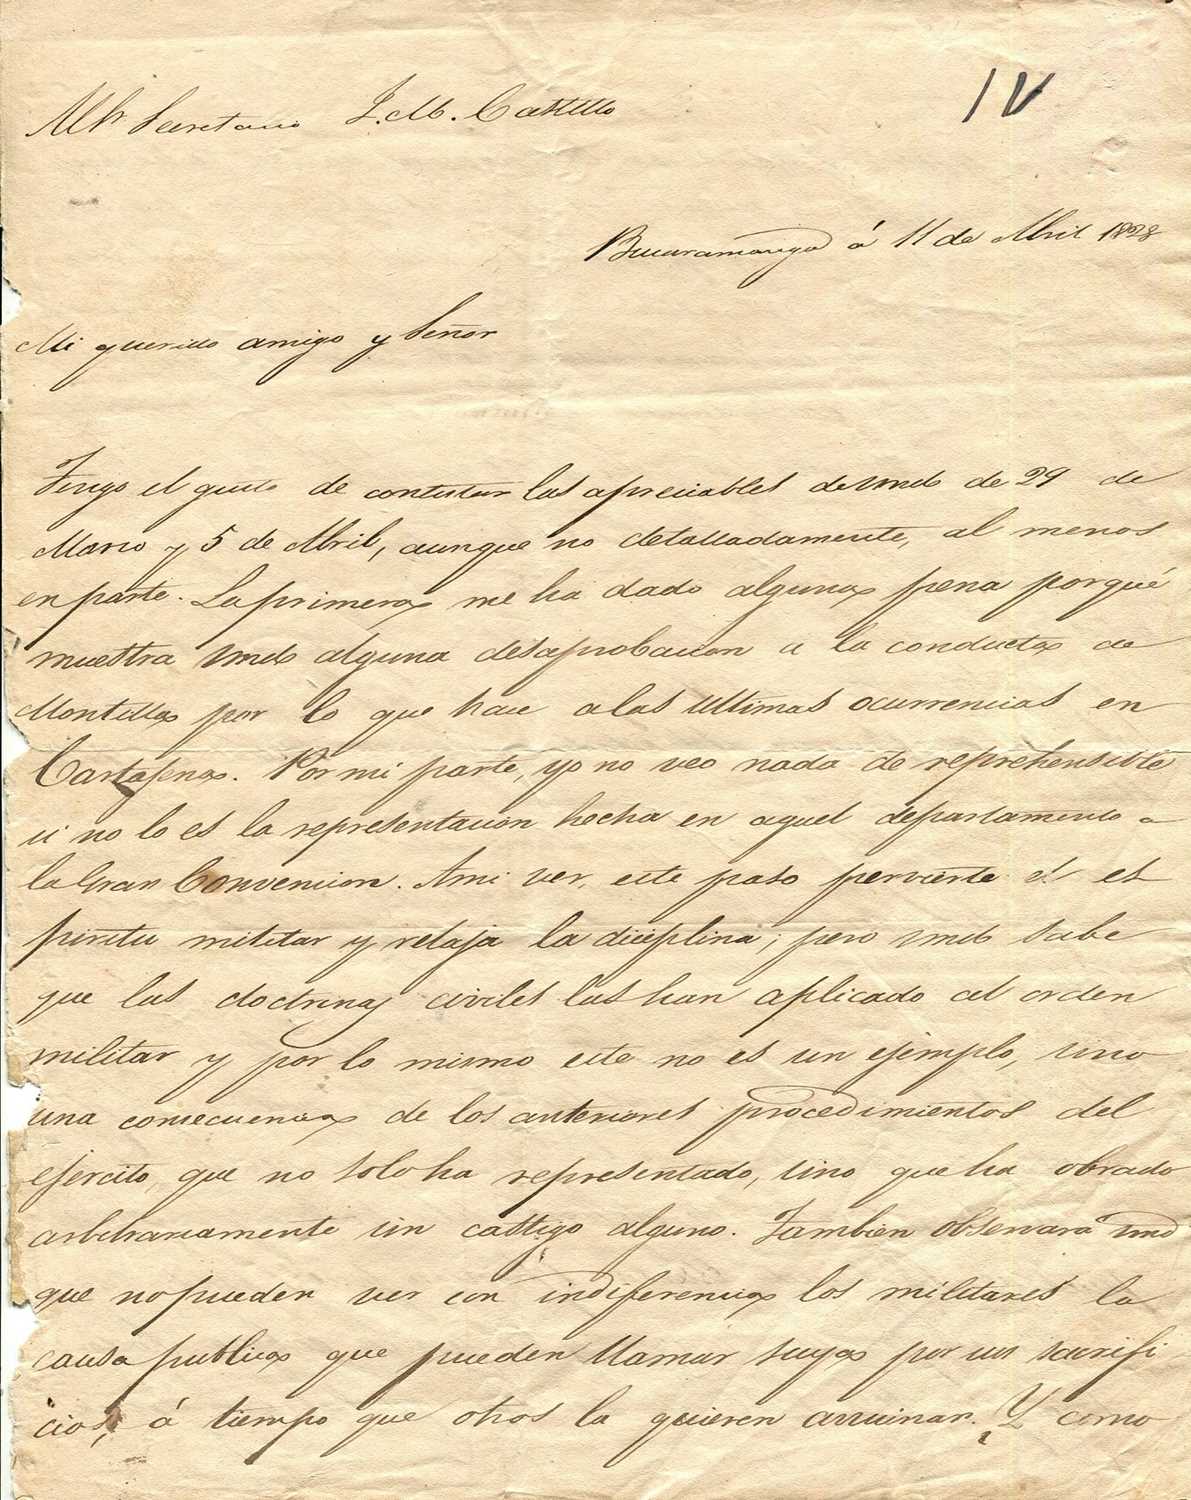 Al Sr Secretario J. M. Castillo
IV
Bucaramanga á 11 de Abril 1828
Mi querido amigo y Señor
Tengo el gusto de contestar las apreciables de Vmd de 29 de
Marzo y 5 de Abril, aunque no detalladamente, al menos
en parte. La primera me ha dado alguna pena porqué
muestra Vmd alguna desaprobacion a la conducta de
Montilla por lo que hace a las ultimas ocurrencias en
Cartagena. Por mi parte, yo no veo nada de reprehensible
si no lo es la representacion hecha en aquel departamento a
la Gran Convencion. A mi ver, este paso pervierte el es
piritu militar y relaja la diciplina; pero Vmd sabe
que las doctrinas civiles las han aplicado al orden
militar y por lo mismo este no es un ejemplo, sino
una consecuencia de los anteriores procedimientos del
ejercito, que no solo ha representado, sino que ha obrado
arbitrariamente sin castigo alguno. Tambien observará Vmd
que no pueden ver con indiferencia los militares la
causa publica que pueden llamar suya por sus sacrifi
cios, á tiempo que otros la quieren arruinar. ¿Y como